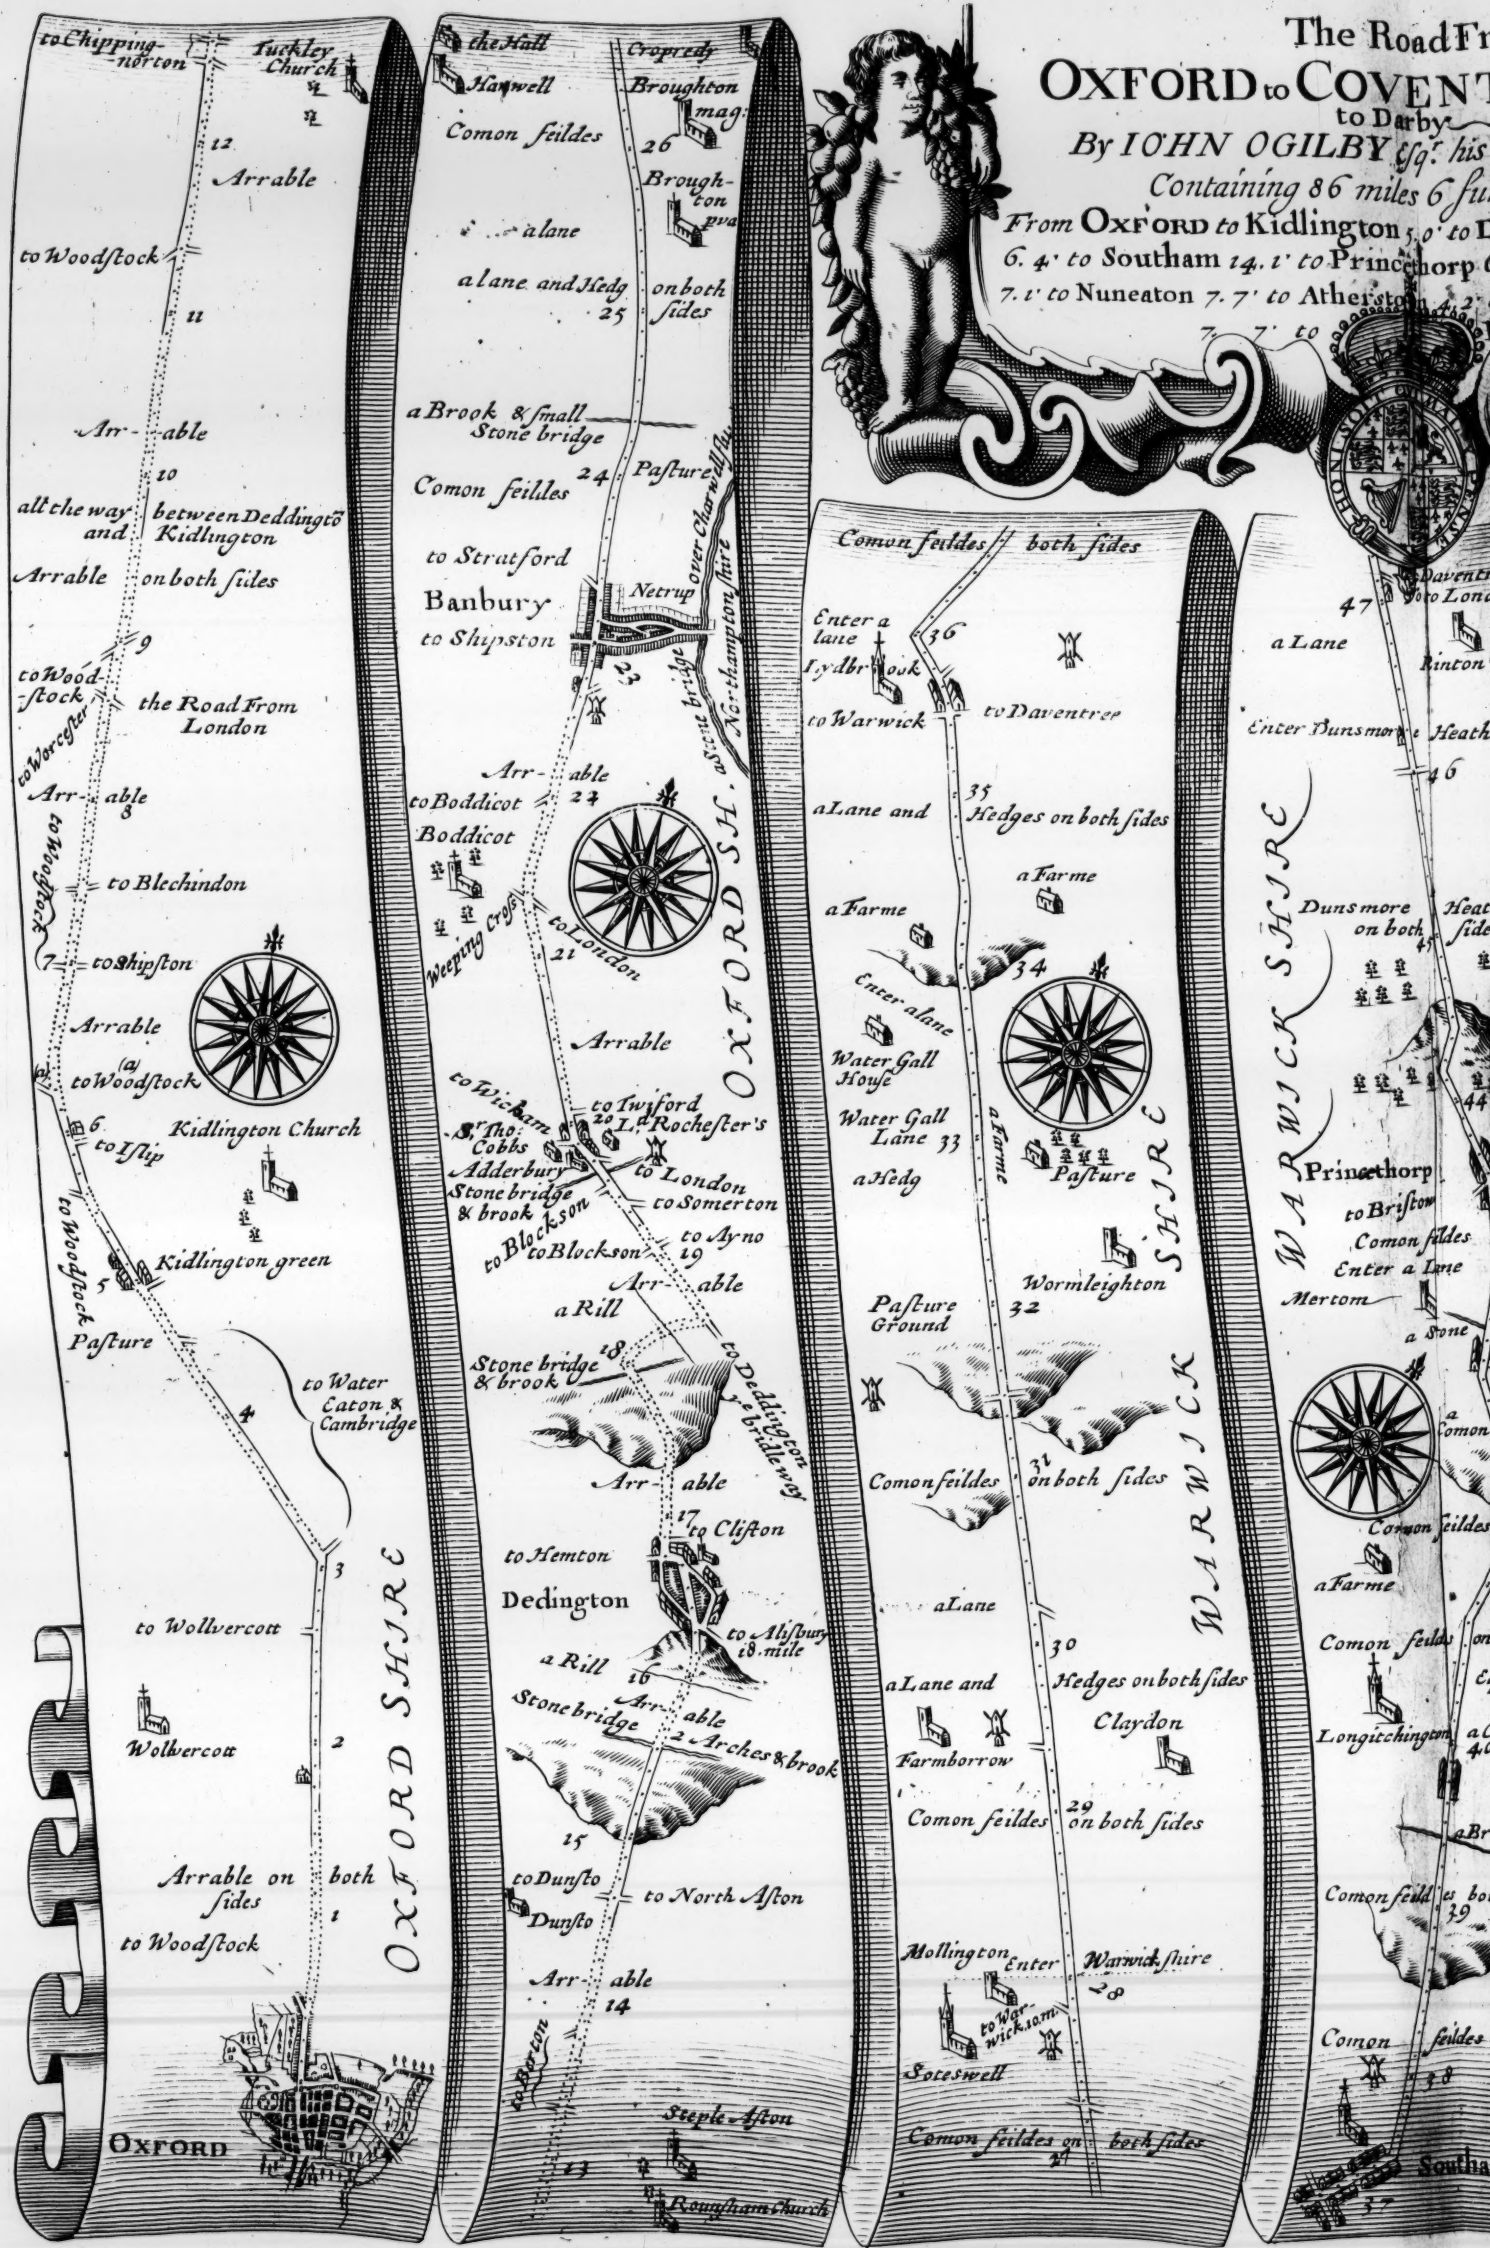 The Road Fr
OXFORD to COVENT
to Darby
By IOHN OGILBY Esqr. his
Containing 86 miles 6 fu
From OXFORD to Kidlington 5,0' to D
6. 4' to Southam 14. 1' to Princethorp
7. 1' to Nuneaton 7. 7' to Atherston 4. 2'
7. 7' to
HONI SOIT QVI MAL Y PENSE
to Chipping-
norton
Tuckley
Church
12
Arrable
to Woodſtock
11
Arr- able
10
all the way between Deddingtō
and Kidlington
Arrable on both ſides
9
to Wood-
-ſtock
the Road From
London
to Worceſter
Arr- able
8
to Woodſtock
to Blechindon
7
to Shipſton
Arrable
(a)
to Woodſtock
6
to Iſlip
Kidlington Church
to Woodſtock
Kidlington green
5
Paſture
to Water
Eaton &
Cambridge
4
3
to Wollvercott
OXFORD SHIRE
Wolvercott
2
Arrable on both
ſides
1
to Woodſtock
OXFORD
the Hall
Cropredy
Hanwell
Broughton
mag:
Comon feildes
26
Brough-
ton
pva
a lane
a lane and Hedg on both
25 ſides
a Brook & ſmall
Stone bridge
24
Paſture
Comon feildes
to Stratford
Banbury
Netrup
over Charwell flu
Northampton ſhire
to Shipston
23
a Stone bridge
Arr- able
22
to Boddicot
Boddicot
Weeping Croſs
to London
21
OXFORD SH.
Arrable
to Wickam
to Twiford
20 Ld. Rocheſter's
Sr. Tho:
Cobbs
Adderbury
to London
Stone bridge
& brook
to Somerton
to Blockson
to Blockson
to Ayno
19
Arr- able
a Rill
18
Stone bridge
& brook
to Deddington
ye bridle way
Arr- able
17
to Clifton
to Hemton
Dedington
to Aliſbury
18. mile
a Rill
16
Arr- able
Stone bridge 2 Arches & brook
15
to Dunſto
to North Aſton
Dunſto
Arr- able
14
to Barton
Steple Aſton
13
Rounſham Church
Comon feildes both ſides
Enter a
lane
36
Lydbrook
to Warwick
to Daventree
35
a Lane and Hedges on both ſides
a Farme
a Farme
34
Enter a lane
Water Gall
Houſe
Water Gall
Lane 33
a Farme
a Hedg
Paſture
Wormleighton
Paſture
Ground
32
31
Comon feildes on both ſides
WARWICK SHIRE
a Lane
30
a Lane and Hedges on both ſides
Claydon
Farmborrow
29
Comon feildes on both ſides
Mollington
Enter Warwick ſhire
28
to War-
wick.10.m.
Soteswell
Comon feildes on both ſides
27
Daventr
to Lond
47
a Lane
Binton
Enter Dunsmore Heath
46
WARWICK SHIRE
Dunsmore Heat
on both ſide
45
44
Princethorp
to Briſtow
Comon feildes
Enter a Lane
Mertom
a Stone
a
Comon
Comon feildes
a Farme
Comon feilds on
Longitchington
40
a Br
Comon feildes bo
39
Comon feildes
38
Southa
37